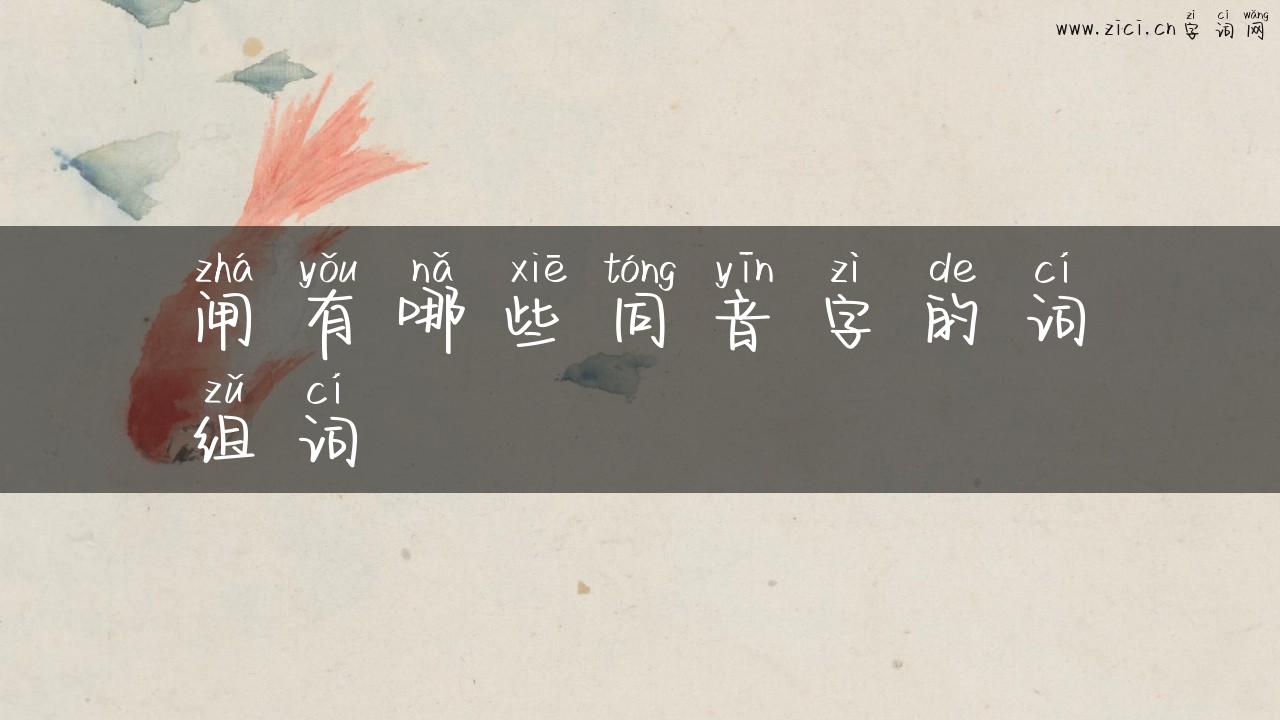 zì cí wǎng
www.zici.cn 字词网
zhá yǒu nǎ xiē tóng yīn zì de cí
闸有哪些同音字的词
zǔ cí
组词